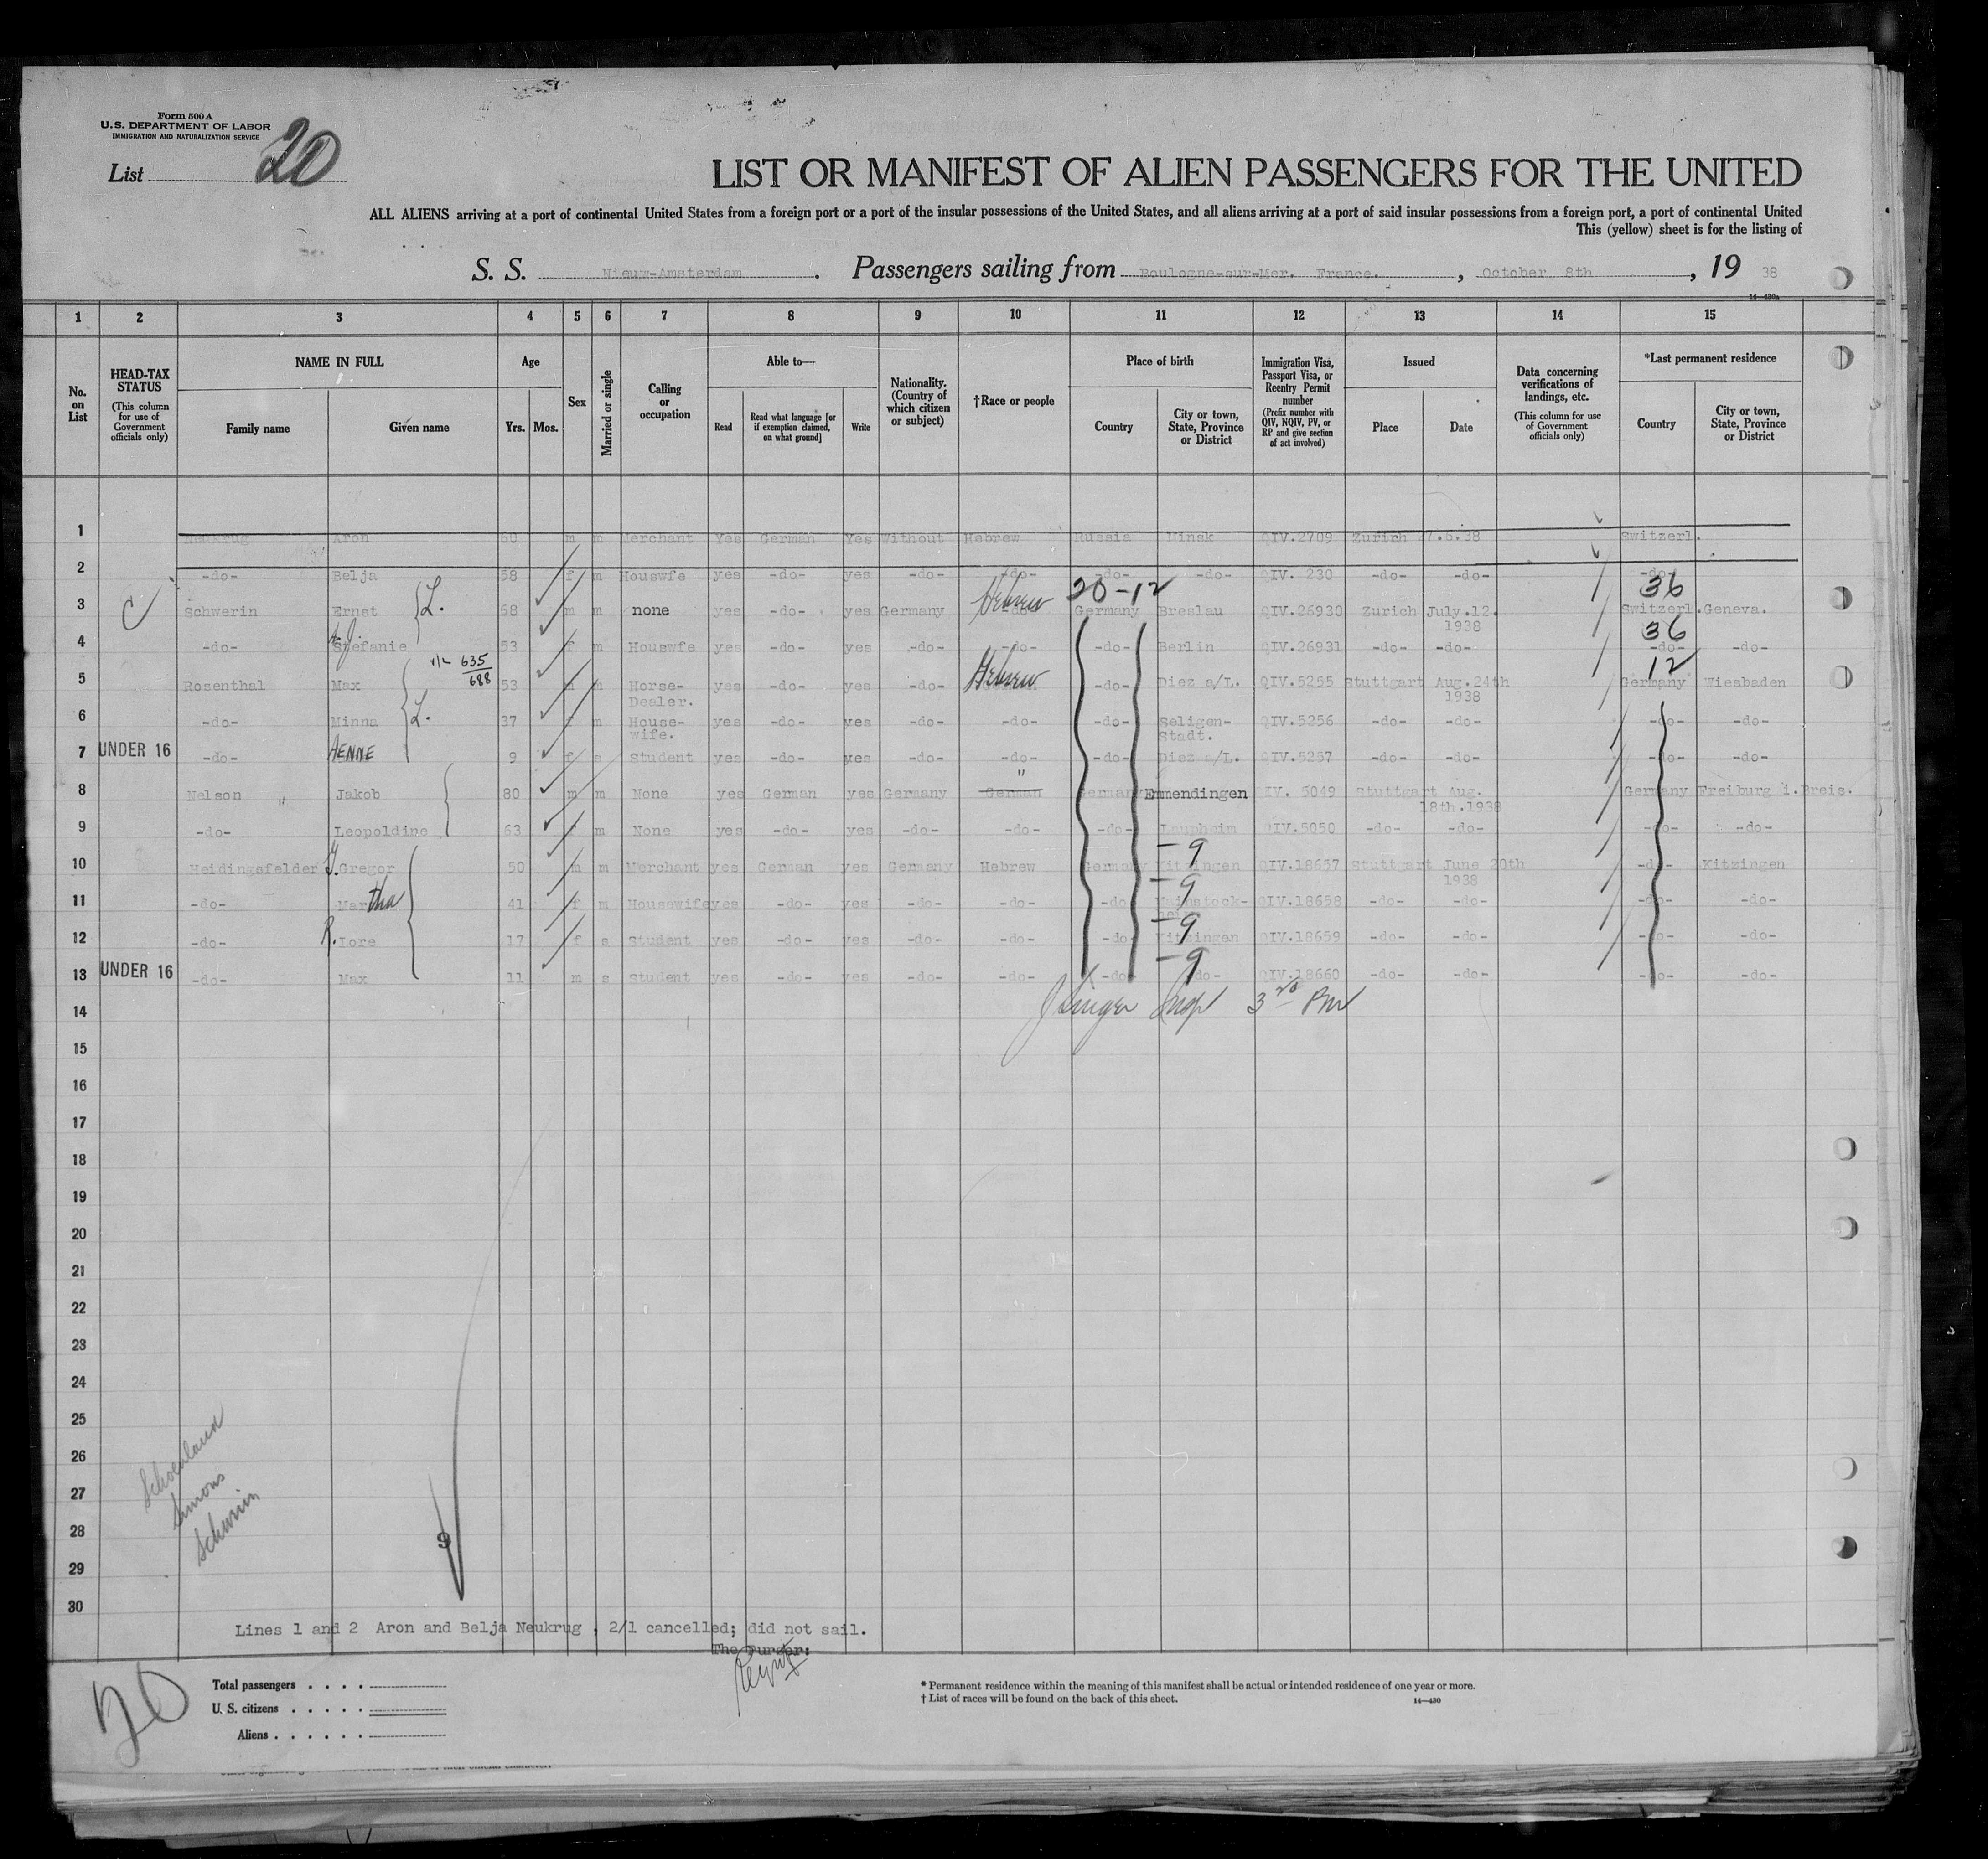 Form 500 A
U.S. DEPARTMENT OF LABOR
IMMIGRATION AND NATURALIZATION SERVICE
List 20
LIST OR MANIFEST OF ALIEN PASSENGERS FOR THE UNITED
ALL ALIENS arriving at a port of continental United States from a foreign port or a port of the insular possessions of the United States, and all aliens arriving at a port of said insular possessions from a foreign port, a port of continental United
This (yellow) sheet is for the listing of
S. S. Nieuw-Amsterdam. Passengers sailing from Boulogne-sur-Mer. France. , October 8th , 19 38
14—430a
1 2 3 4 5 6 7 8 9 10 11 12 13 14 15
No. on List
HEAD-TAX STATUS (This column for use of Government officials only)
NAME IN FULL Family name Given name
Age Yrs. Mos.
Sex
Married or single
Calling or occupation
Able to— Read Read what language [or if exemption claimed, on what ground] Write
Nationality. (Country of which citizen or subject)
†Race or people
Place of birth Country City or town, State, Province or District
Immigration Visa, Passport Visa, or Reentry Permit number (Prefix number with QIV, NQIV, PV, or RP and give section of act involved)
Issued Place Date
Data concerning verifications of landings, etc. (This column for use of Government officials only)
*Last permanent residence Country City or town, State, Province or District
1 Neukrug Aron 60 m m Merchant Yes German Yes Without Hebrew Russia Minsk QIV.2709 Zurich 7.6.38 Switzerl.
2 -do- Belja 58 f m Houswfe yes -do- yes -do- -do- -do- -do- QIV. 230 -do- -do- -do-
20-12 36
3 C Schwerin Ernst L. 68 m m none yes -do- yes Germany Hebrew -do- Germany Breslau QIV.26930 Zurich July.12. 1938 Switzerl. Geneva.
36
4 -do- Stefanie 53 f m Houswfe yes -do- yes -do- -do- -do- Berlin QIV.26931 -do- -do- -do- -do-
635
688
12
5 Rosenthal Max 53 m m Horse-Dealer. yes -do- yes -do- Hebrew -do- Diez a/L. QIV.5255 Stuttgart Aug.24th 1938 Germany Wiesbaden
6 -do- Minna L. 37 f m House-wife. yes -do- yes -do- -do- -do- Seligen-Stadt. QIV.5256 -do- -do- -do- -do-
7 UNDER 16 -do- AENNE 9 f s Student yes -do- yes -do- -do- -do- Diez a/L. QIV.5257 -do- -do- -do- -do-
8 Nelson " Jakob 80 m m None yes German yes Germany German " Germany Emmendingen IV. 5049 Stuttgart Aug. 18th.1938 Germany Freiburg i.Breis.
9 -do- Leopoldine 63 f m None yes -do- yes -do- -do- -do- Laupheim QIV.5050 -do- -do- -do- -do-
-9
10 Heidingsfelder Gregor 50 m m Merchant yes German yes Germany Hebrew Germany Kitzingen QIV.18657 Stuttgart June 20th 1938 -do- Kitzingen
-9
11 -do- Martha 41 f m Housewife yes -do- yes -do- -do- -do- QIV.18658 -do- -do- -do- -do-
-9
12 -do- R. Lore 17 f s Student yes -do- yes -do- -do- -do- Kitzingen QIV.18659 -do- -do- -do- -do-
-9
13 UNDER 16 -do- Max 11 m s Student yes -do- yes -do- -do- -do- -do- QIV.18660 -do- -do- -do- -do-
14
15
16
17
18
19
20
21
22
23
24
25
26
27
28
29
30
Schoenland
Simons
Schwerin
9
Lines 1 and 2 Aron and Belja Neukrug , 2/1 cancelled; did not sail.
The Purser:
20
Total passengers . . . .
U. S. citizens . . . . .
Aliens . . . . . .
* Permanent residence within the meaning of this manifest shall be actual or intended residence of one year or more.
† List of races will be found on the back of this sheet.
14—430